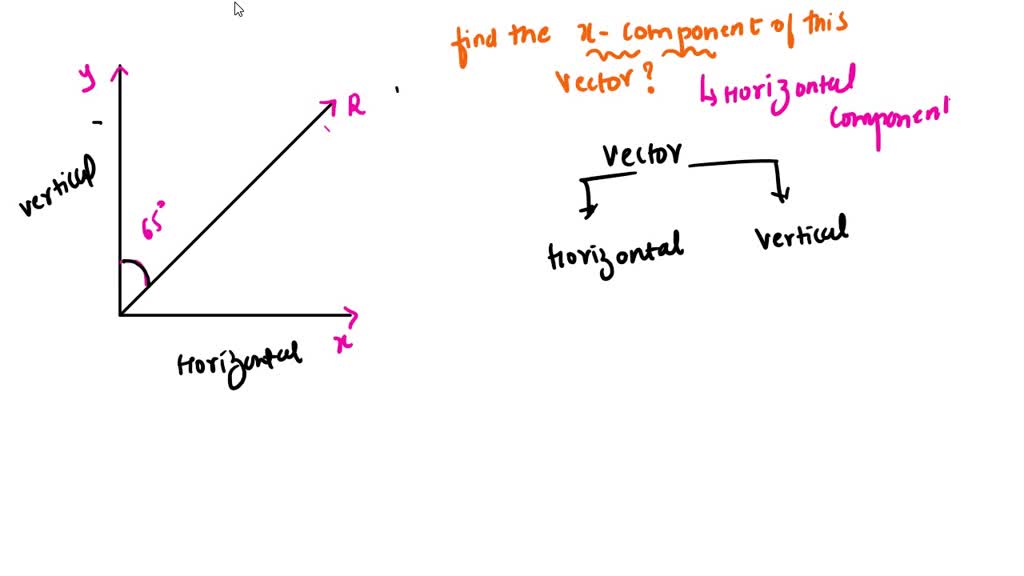 find the x-component of this
vector?
↳ Horizontal
component
y
R
vertical
65°
x
Horizontal
vector
Horizontal
vertical